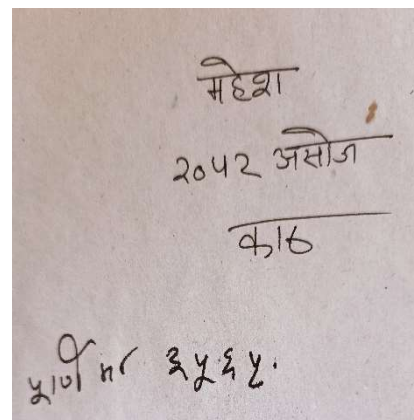 महेश
२०५२ असोज
काठ
पूर्ण नं ३५६५.